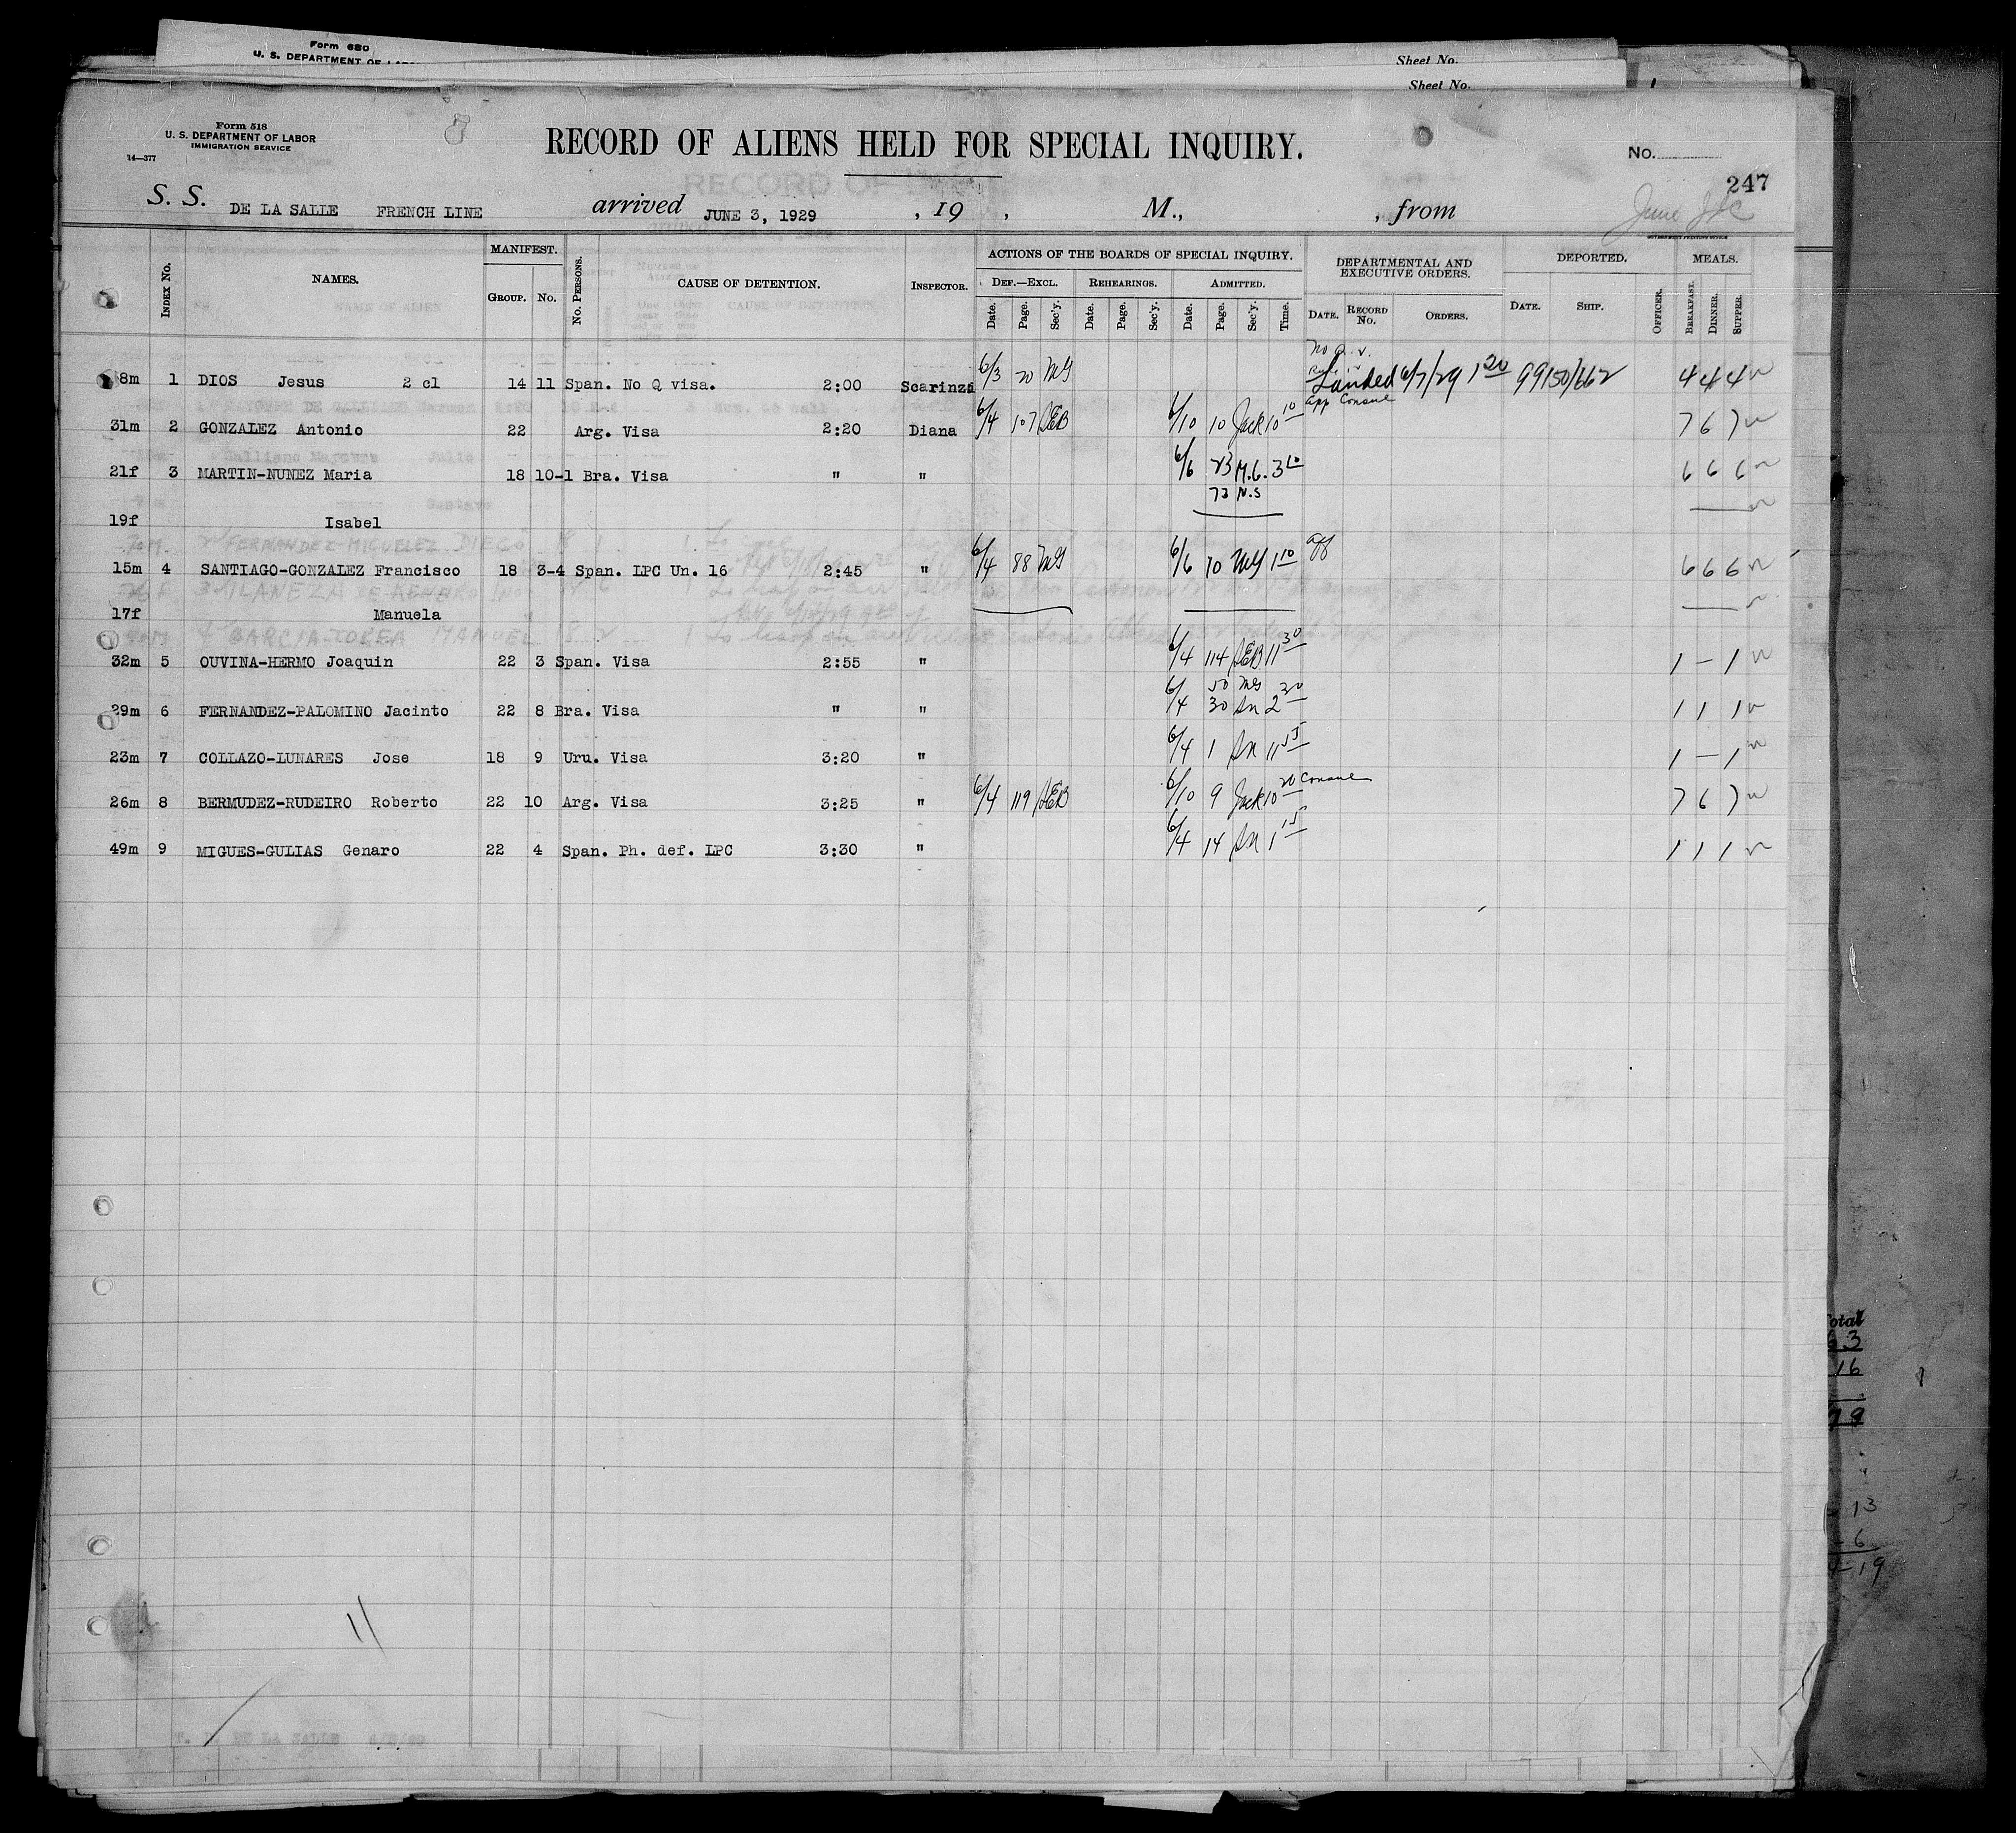 Form 680
U. S. DEPARTMENT OF LABOR
Sheet No.
Sheet No.
Form 518
U. S. DEPARTMENT OF LABOR
IMMIGRATION SERVICE
14—377
RECORD OF ALIENS HELD FOR SPECIAL INQUIRY.
No.
247
S. S. DE LA SALLE FRENCH LINE arrived JUNE 3, 1929 , 19 , M., , from
June
INDEX No. NAMES. MANIFEST. GROUP. No. No. PERSONS. CAUSE OF DETENTION. INSPECTOR. ACTIONS OF THE BOARDS OF SPECIAL INQUIRY. DEF.—EXCL. Date. Page. Sec'y. REHEARINGS. Date. Page. Sec'y. ADMITTED. Date. Page. Sec'y. Time. DEPARTMENTAL AND EXECUTIVE ORDERS. DATE. RECORD No. ORDERS. DEPORTED. DATE. SHIP. OFFICER. MEALS. BREAKFAST. DINNER. SUPPER.
8m 1 DIOS Jesus 2 cl 14 11 Span. No Q visa. 2:00 Scarinzi 6/3 20 MG Landed 6/7/29 1 20 99150/662 4 4 4
app Consul
31m 2 GONZALEZ Antonio 22 Arg. Visa 2:20 Diana 6/4 107 SEB 6/10 10 Jack 10 10 7 6 7
21f 3 MARTIN-NUNEZ Maria 18 10-1 Bra. Visa " " 6/6 23 M.C. 3 10 6 6 6
72 N.S
19f Isabel
15m 4 SANTIAGO-GONZALEZ Francisco 18 3-4 Span. LPC Un. 16 2:45 " 6/4 88 MG 6/6 70 MG 1 10 aff 6 6 6
17f Manuela
32m 5 OUVINA-HERMO Joaquin 22 3 Span. Visa 2:55 " 6/4 114 SEB 11 30 1 – 1
50 MG
29m 6 FERNANDEZ-PALOMINO Jacinto 22 8 Bra. Visa " " 6/4 30 Sn 2 30 1 1 1
23m 7 COLLAZO-LUNARES Jose 18 9 Uru. Visa 3:20 " 6/4 1 Sn 11 55 1 – 1
26m 8 BERMUDEZ-RUDEIRO Roberto 22 10 Arg. Visa 3:25 " 6/4 119 SEB 6/10 9 Jack 10 20 Consul 7 6 7
49m 9 MIGUES-GULIAS Genaro 22 4 Span. Ph. def. LPC 3:30 " 6/4 14 Sn 1 15 1 1 1
11
Total
63
16
13
6
19